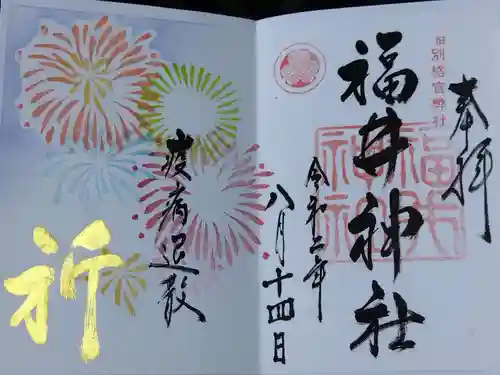 奉拝
旧別格官幣社
福井神社
福井神社
令和二年
八月十四日
疫病退散
祈